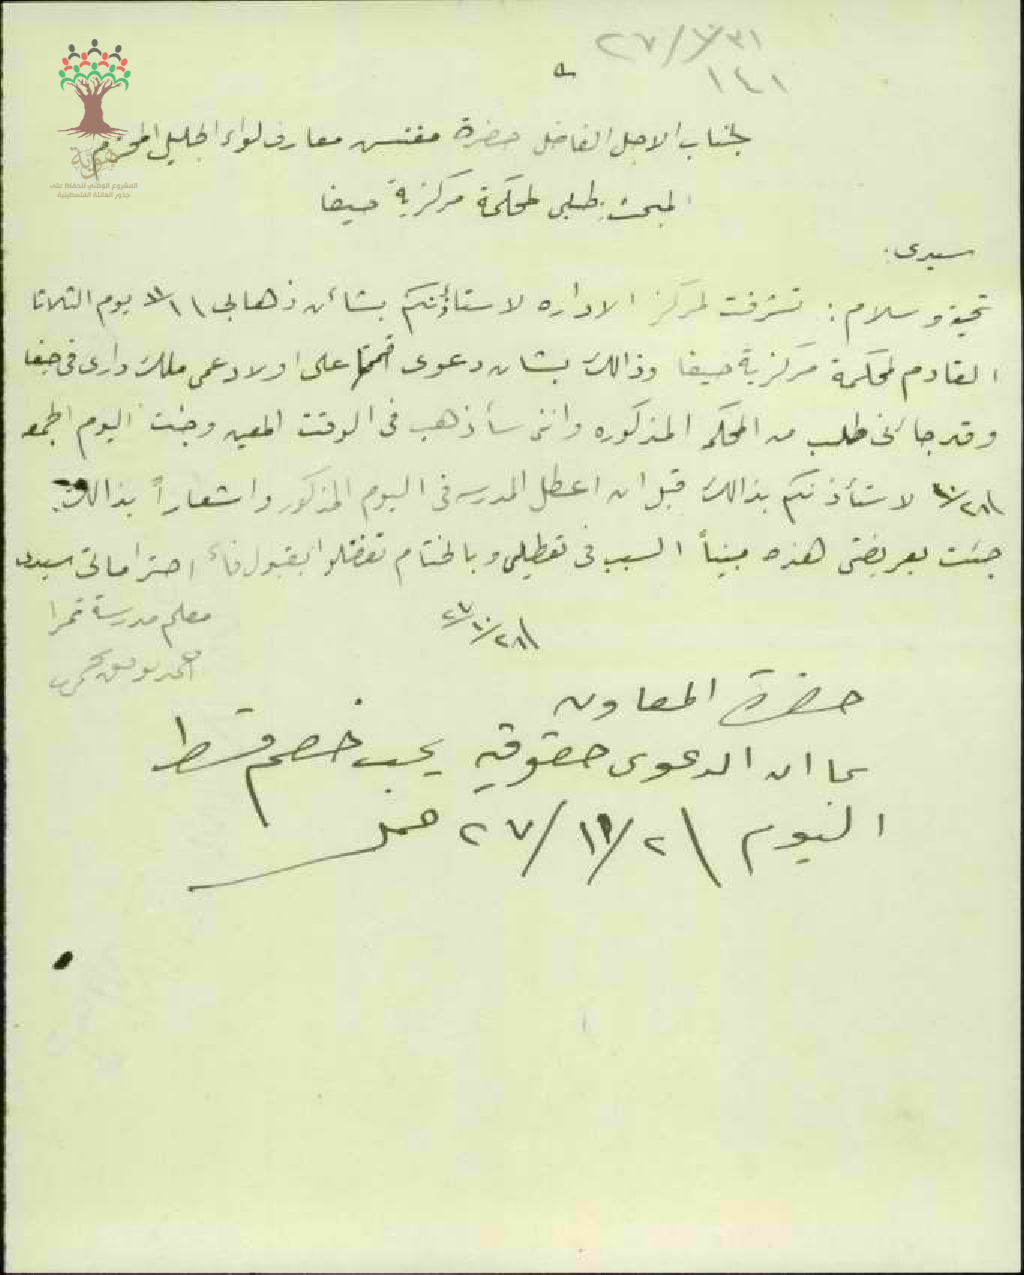 ١٤١
لجناب الاجل الفاضل حضرة مفتش معارف لواء الجليل المحترم
هوية
المشروع الوطني للحفاظ على
جذور العائلة الفلسطينية
المبحث بطلبي لمحكمة مركزية حيفا
سيدي
تحية وسلام: تشرفت لمركز الاداره لاستأذنكم بشأن ذهابي يوم الثلاثا
القادم لمحكمة مركزية حيفا وذالك بشان دعوى على اولاد عمي ملك داري في حيفا
وقد جائني طلب من المحكمه المذكوره وانني سأذهب في الوقت المعين وجئت اليوم الجمعه
لاستأذنكم بذالك قبل ان اعطل المدرسه في اليوم المذكور واشعاراً بذالك
جئت بعريضتي هذه مبيناً السبب في تعطيلي وبالختام تفضلوا بقبول احتراماتي سيدي
معلم مدرسة
احمد توفيق
حضرة المعاون
بما ان الدعوى حقوقيه يجب خصم قسط
اليوم ٢ / ١١ / ٢٧